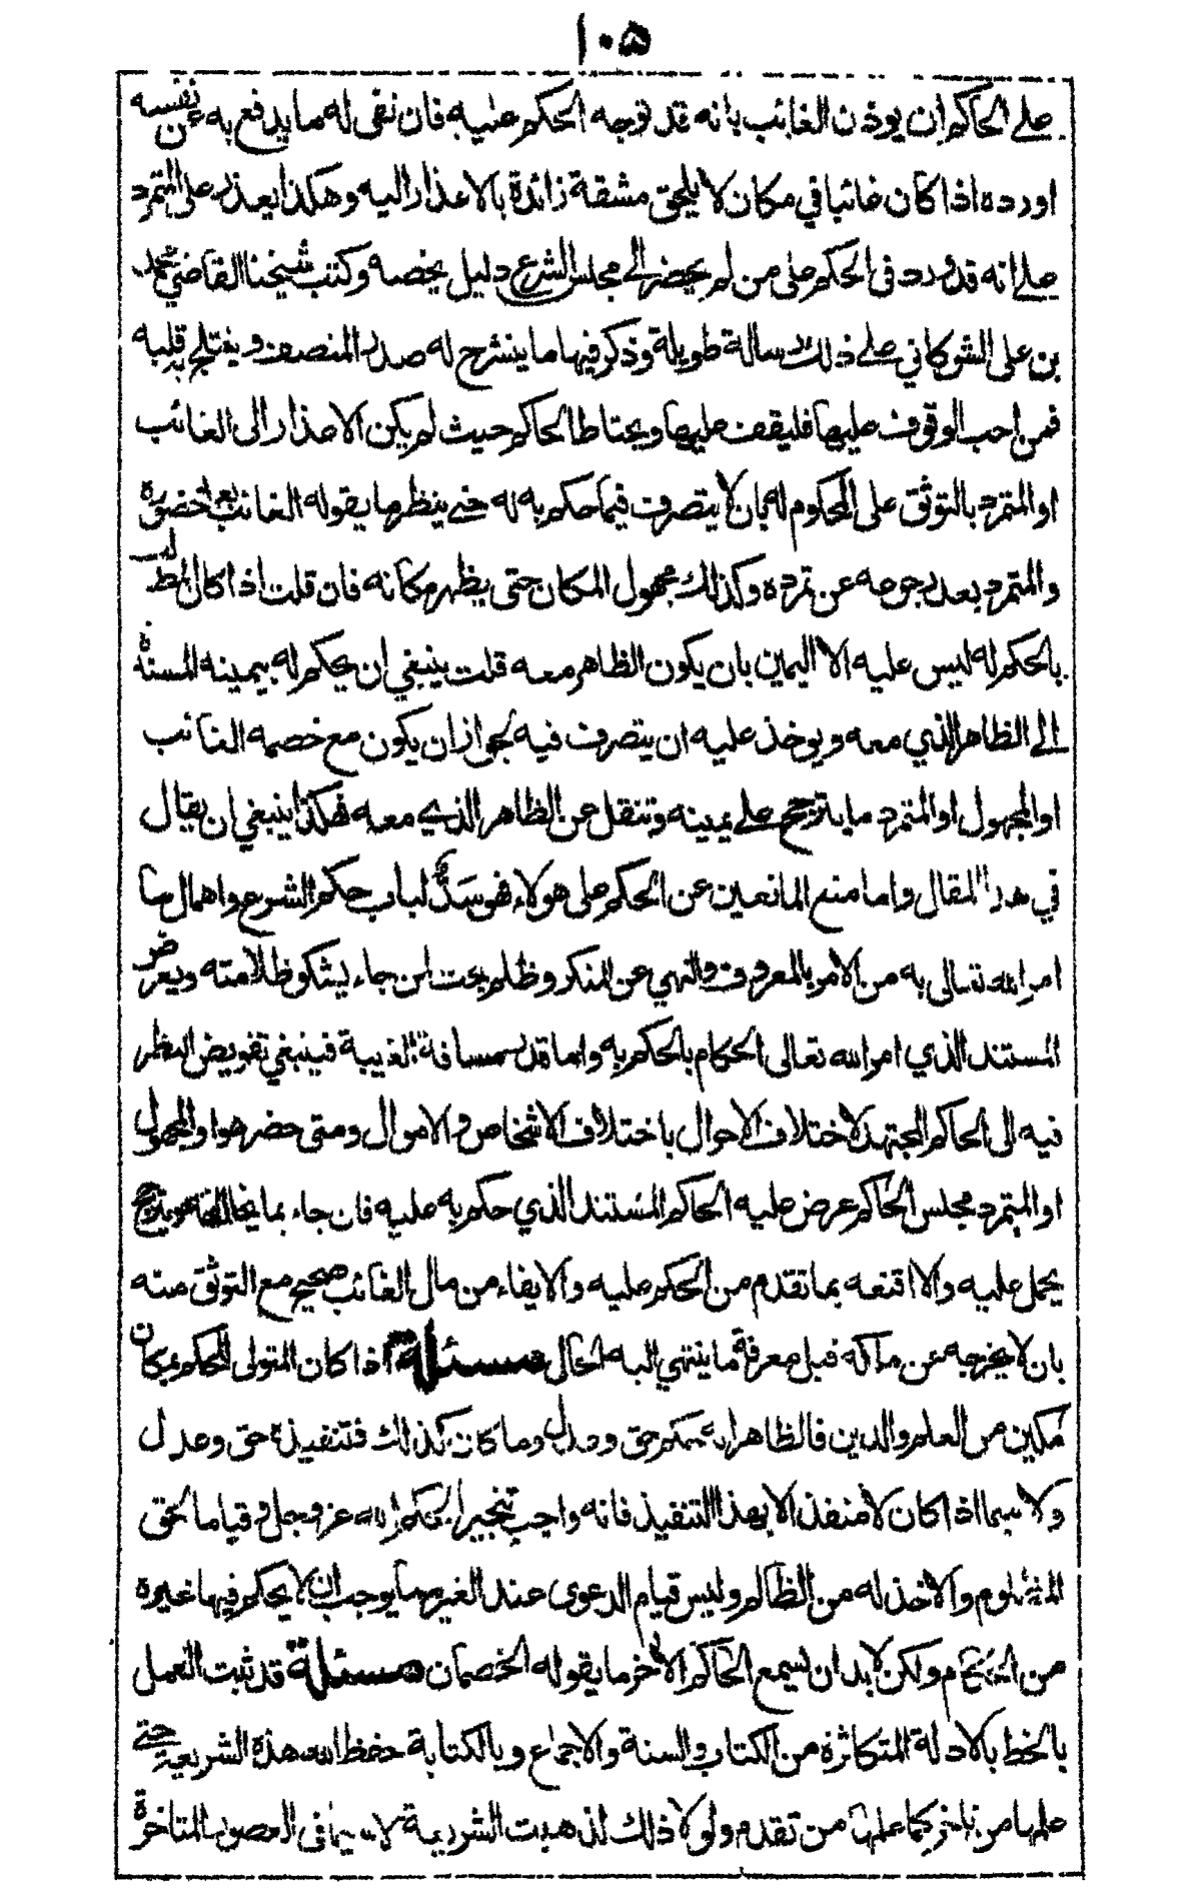 ١٠٥
على الحاكم ان يوذن الغائب بانه قد توجه الحكم عليه فان نفى له ما يدفع به عن نفسه
اورده اذا كان غائبا في مكان لا يلحق مشقة زائدة بالاعذار اليه وهكذا يعذر على المتمرد
على انه قد ورد في الحكم على من لم يحضر الى مجلس الشرع دليل يخصه وكتب شيخنا القاضي محمد
بن على الشوكاني على ذلك رسالة طويلة وذكر فيها ما ينشرح له صدر المنصف ويثلج قلبه
فمن احب الوقوف عليها فليقف عليها ويحتاط الحاكم حيث لم يكن الاعذار الى الغائب
او المتمرد بالتوثق على المحكوم له بان لا يتصرف فيما حكم به له حتى ينظر ما يقوله الغائب بعد حضوره
والمتمرد بعد رجوعه عن تمرده وكذلك مجهول المكان حتى يظهر مكانه فان قلت اذا كان الطالب
بالحكم له ليس عليه الا اليمين بان يكون الظاهر معه قلت ينبغي ان يحكم له بيمينه المستندة
الى الظاهر الذي معه ويوخذ عليه ان يتصرف فيه لجواز ان يكون مع خصمه الغائب
او المجهول او المتمرد ما يترجح على يمينه وتنقل عن الظاهر الذي معه فهكذا ينبغي ان يقال
في هذا المقال واما منع المانعين عن الحكم على هولاء فهو سَدٌّ لباب حكم الشرع واهمال ما
امر الله تعالى به من الامر بالمعروف والنهي عن المنكر وظلم بحت لمن جاء يشكو ظلامته ويعرض
المستند الذي امر الله تعالى الحكام بالحكم به واما قدر مسافة الغيبة فينبغي تفويض النظر
فيه الى الحاكم المجتهد لاختلاف الاحوال باختلاف الاشخاص والاموال ومتى حضر هو او المجهول
او المتمرد مجلس الحاكم عرض عليه الحاكم المستند الذي حكم به عليه فان جاء بما يخالفه
يحمل عليه والا اقنعه بما تقدم من الحكم عليه والايفاء من مال الغائب صحيح مع التوثق منه
بان لا يخرجه عن ملكه قبل معرفة ما ينتهي اليه الحال مسئلة اذا كان المتولى للحكم بمكان
مكين من العلم والدين فالظاهر ان حكمه حق وعدل وما كان كذلك فتنفيذه حق وعدل
ولا سيما اذا كان لا منفذ الا بهذا التنفيذ فانه واجب لحكم الله عز وجل وقياما لحق
المظلوم والاخذ له من الظالم وليس قيام الدعوى عند الغير مما يوجب ان لا يحكم فيها غيره
من الحكام ولكن لا بد ان يسمع الحاكم الاخر ما يقوله الخصمان مسئلة قد ثبت العمل
بالخط بالادلة المتكاثرة من الكتاب والسنة والاجماع وبالكتابة حفظ الله هذه الشريعة حتى
علمها من تاخر كما علمها من تقدم ولولا ذلك لذهبت الشريعة لا سيما في العصور المتاخرة